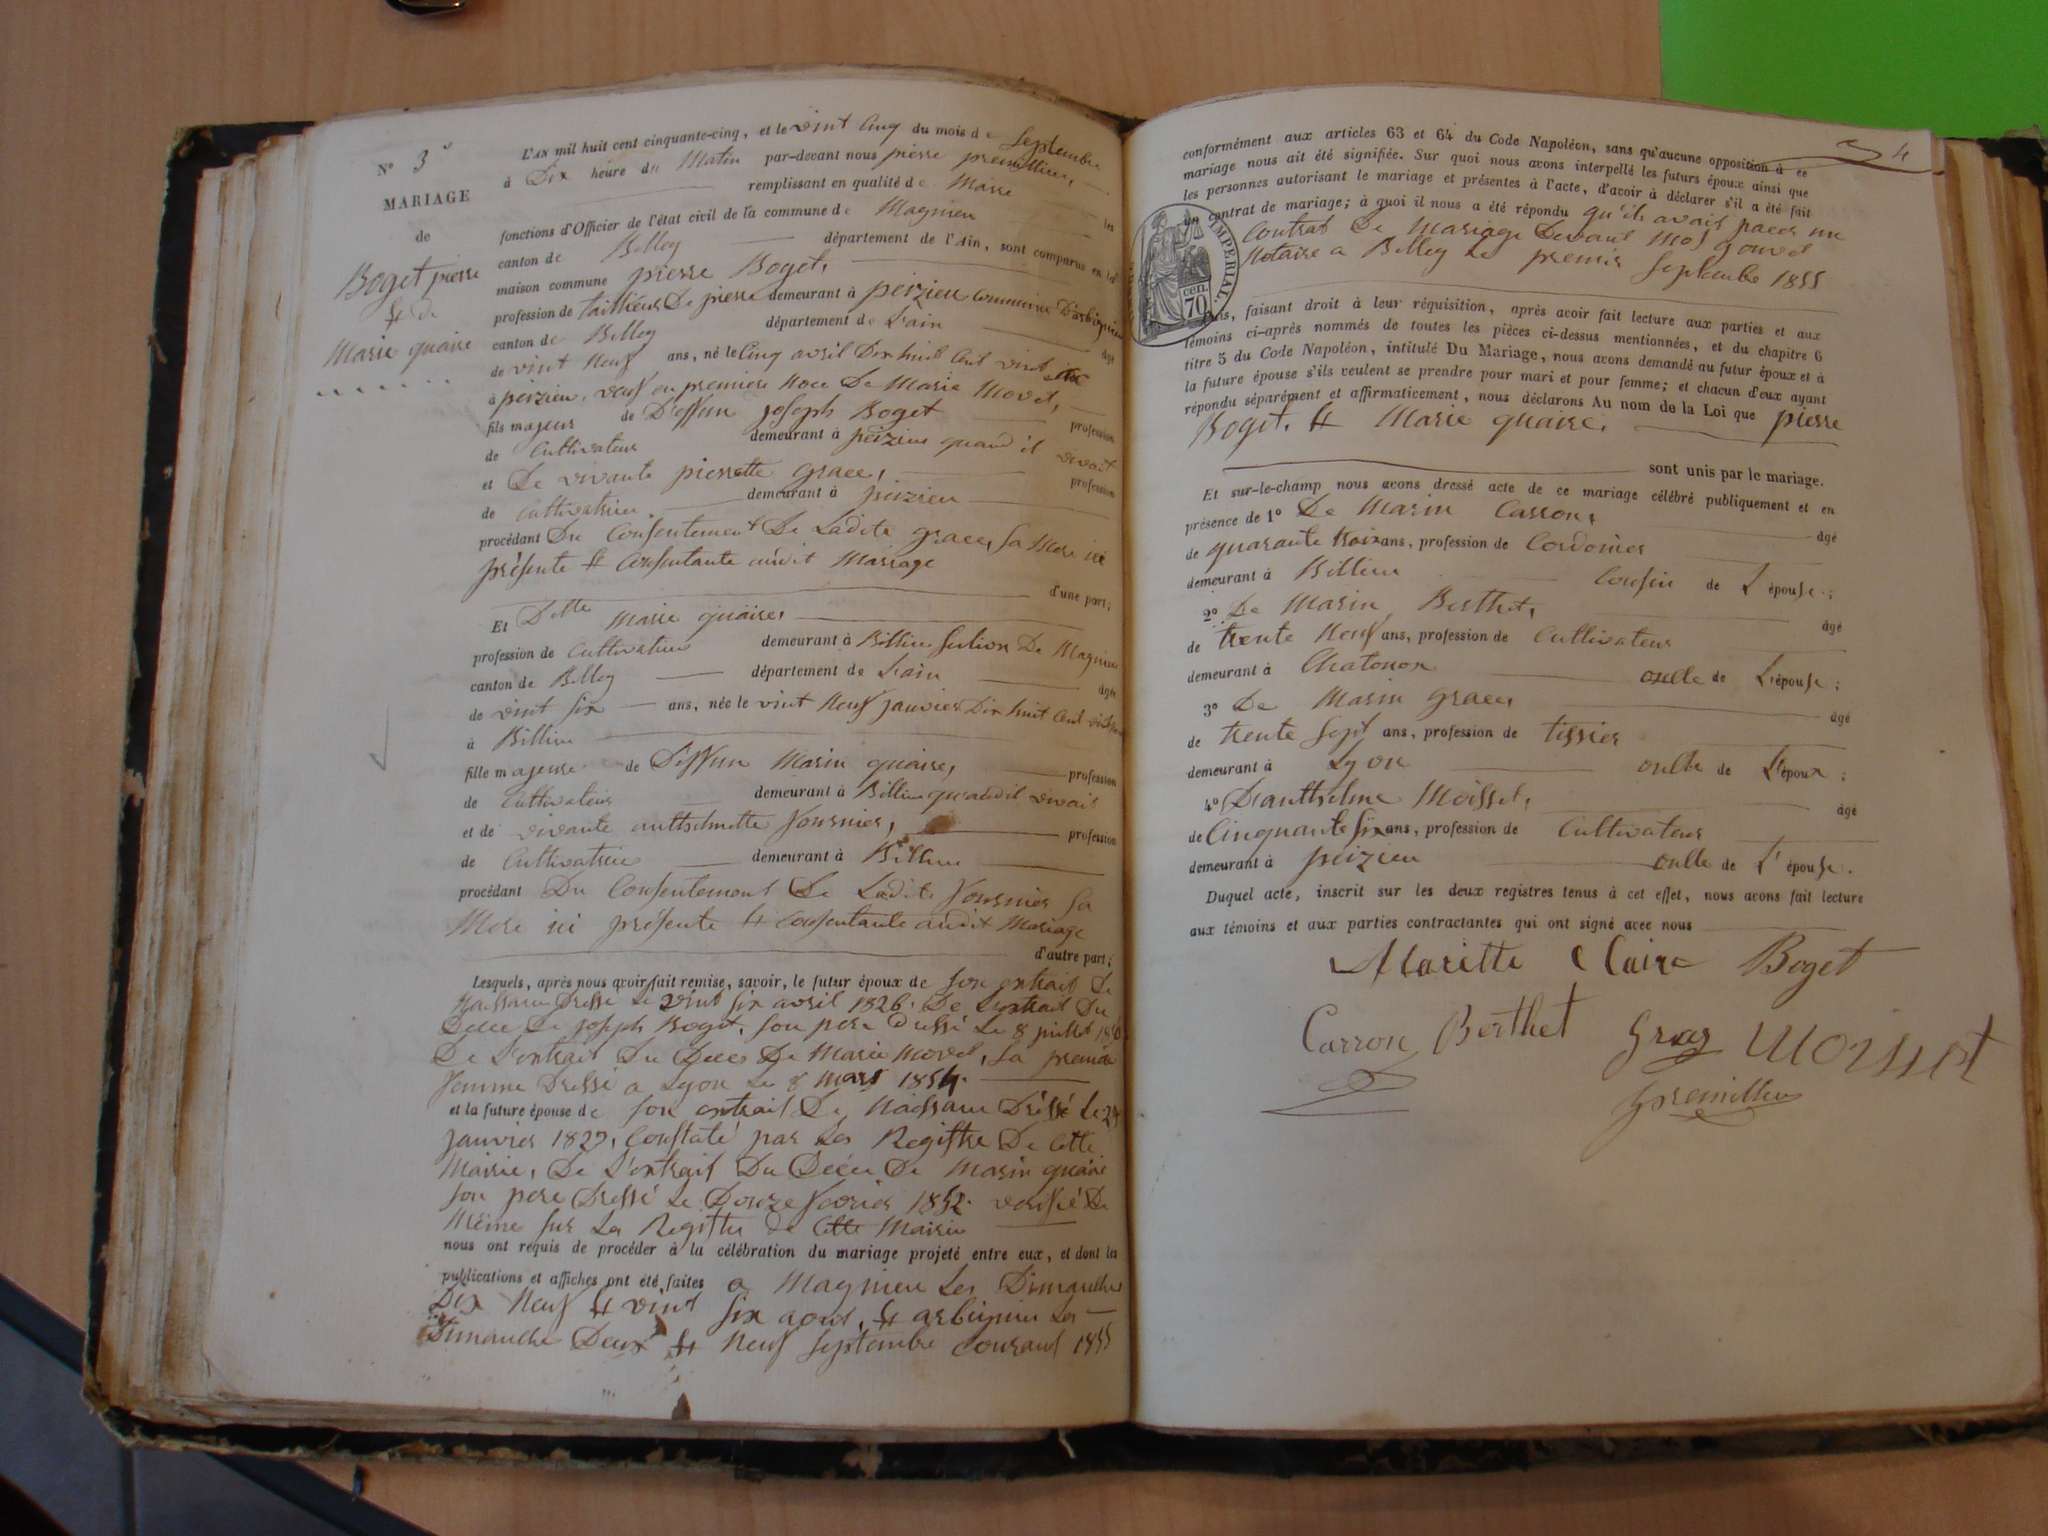 N° 3
MARIAGE
de
Boget pierre
et de
Marie quaire
L'AN mil huit cent cinquante-cinq, et le vint cinq du mois de Septembre
à Dix heure du Matin par-devant nous pierre premillieu,
remplissant en qualité de Maire les
fonctions d'Officier de l'état civil de la commune de Magnieu
canton de Belley département de l'Ain, sont comparus en la
maison commune pierre Boget,
profession de tailleur De pierre demeurant à peizieu commune D'arbignieu
canton de Belley département de L'ain âgé
de vint Neuf ans, né le Cinq avril Dix huit Cent vint six
à peizieu, veuf en premiere Noce De Marie Movet,
fils majeur de Deffun joseph Boget profession
de Cultivateur demeurant à peizieu quand il vivait
et De vivante pierrette grace, profession
de Cultivatrice demeurant à peizieu
procédant Du Consentement De Ladite grace, Sa Mere ici
présente et Consentante audit Mariage
d'une part;
Et Delle Marie quaire,
profession de Cultivateur demeurant à Billieu section De Magnieu
canton de Belley département de L'ain âgée
de vint six ans, née le vint Neuf janvier Dix huit Cent vint
à Billieu
fille majeure de Deffun Marin quaire, profession
de Cultivateur demeurant à Billieu quand il vivait
et de vivante anthelmette fournier, profession
de Cultivatrice demeurant à Billieu
procédant Du Consentement De Ladite fournier Sa
Mere ici presente et Consentante audit Mariage
d'autre part;
Lesquels, après nous avoir fait remise, savoir, le futur époux de son extrait De
Naissance Dressé Le vint six avril 1826. De L'extrait Du
Décé De joseph Boget, son pere dressé Le 8 juillet
De L'extrait Du Décé De Marie Movet, sa premiere
femme Dressé a Lyon Le 8 mars 1854.
et la future épouse de son extrait De Naissance Dréssé Le 29
janvier 1829, Constaté par Les Registre De Cette
Mairie, De L'extrait Du Décée De Marin quaire
son pere Dressé Le Douze fevrier 1852. vérifié De
Même sur Les Registre de Cette Mairie
nous ont requis de procéder à la célébration du mariage projeté entre eux, et dont les
publications et affiches ont été faites a Magnieu Les Dimanche
Dix Neuf et vint six aout, et arbignieu Les
Dimanche Deux et Neuf Septembre Courant 1855
4
conformément aux articles 63 et 64 du Code Napoléon, sans qu'aucune opposition à ce
mariage nous ait été signifiée. Sur quoi nous avons interpellé les futurs époux ainsi que
les personnes autorisant le mariage et présentes à l'acte, d'avoir à déclarer s'il a été fait
un contrat de mariage; à quoi il nous a été répondu qu'ils avait passé un
Contrat De Mariage Devant Mos gouvet
Notaire a Belley Le premier Septembre 1855
IMPERIAL.
cen. 70
faisant droit à leur réquisition, après avoir fait lecture aux parties et aux
témoins ci-après nommés de toutes les pièces ci-dessus mentionnées, et du chapitre 6
titre 5 du Code Napoléon, intitulé Du Mariage, nous avons demandé au futur époux et à
la future épouse s'ils veulent se prendre pour mari et pour femme; et chacun d'eux ayant
répondu séparément et affirmativement, nous déclarons Au nom de la Loi que pierre
Boget, et Marie quaire,
sont unis par le mariage.
Et sur-le-champ nous avons dressé acte de ce mariage célébré publiquement et en
présence de 1° De Marin Carron, âgé
de quarante trois ans, profession de Cordonier
demeurant à Billieu Cousin de L'épouse;
2° De Marin Berthet, âgé
de trente Neuf ans, profession de Cultivateur
demeurant à Chatonox oncle de L'épouse;
3° De Marin grace, âgé
de trente Sept ans, profession de tissier
demeurant à Lyon oncle de L'époux;
4° D'anthelme Moisset, âgé
de Cinquante Six ans, profession de Cultivateur
demeurant à peizieu oncle de L'épouse.
Duquel acte, inscrit sur les deux registres tenus à cet effet, nous avons fait lecture
aux témoins et aux parties contractantes qui ont signé avec nous
Mariette Claire Boget
Carron Berthet Gras Moisset
premillieu